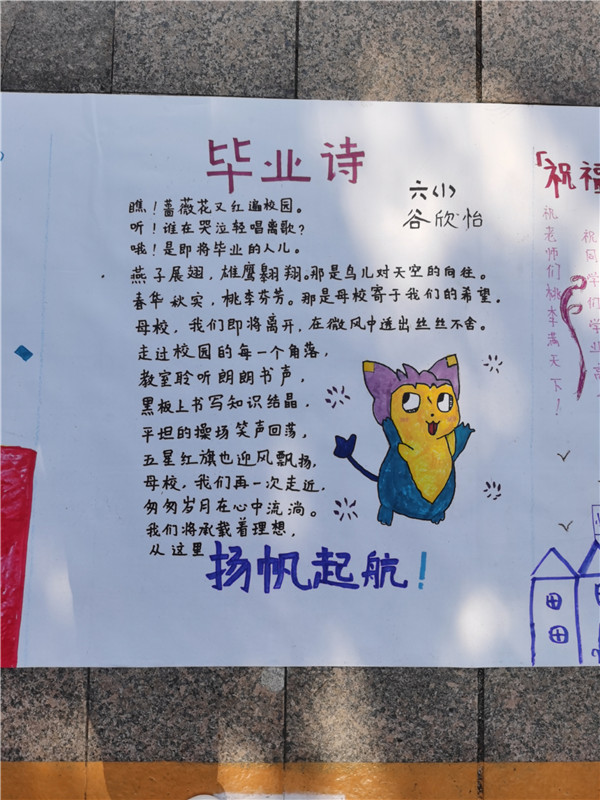 毕业诗
六(八)
谷欣怡
瞧！蔷薇花又红遍校园。
听！谁在哭泣轻唱离歌？
哦！是即将毕业的人儿。
燕子展翅，雄鹰翱翔。那是鸟儿对天空的向往。
春华秋实，桃李芬芳。那是母校寄于我们的希望。
母校，我们即将离开，在微风中透出丝丝不舍。
走过校园的每一个角落，
教室聆听朗朗书声，
黑板上书写知识结晶，
平坦的操场笑声回荡，
五星红旗也迎风飘扬，
母校，我们再一次走近，
匆匆岁月在心中流淌。
我们将承载着理想，
从这里
扬帆起航！
「祝福
祝老师们桃李满天下！